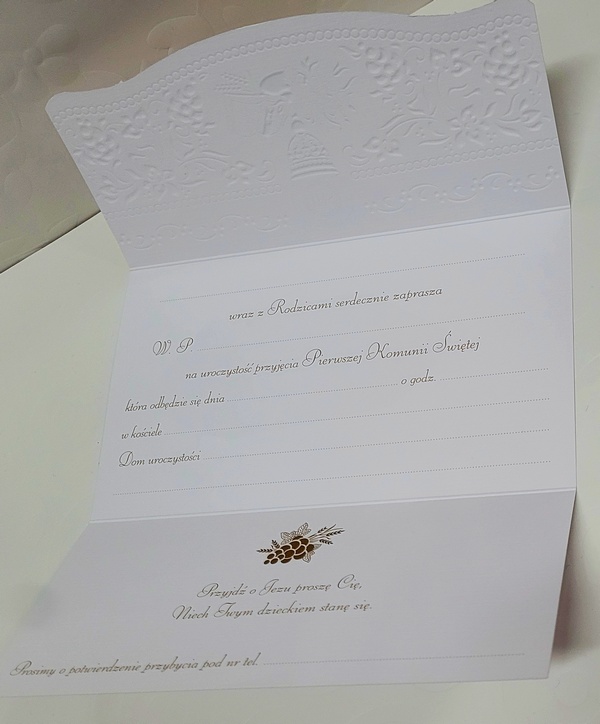 wraz z Rodzicami serdecznie zaprasza
W. P.
na uroczystość przyjęcia Pierwszej Komunii Świętej
która odbędzie się dnia o godz.
w kościele
Dom uroczystości
Przyjdź o Jezu proszę Cię,
Niech Twym dzieckiem stanę się.
Prosimy o potwierdzenie przybycia pod nr tel.